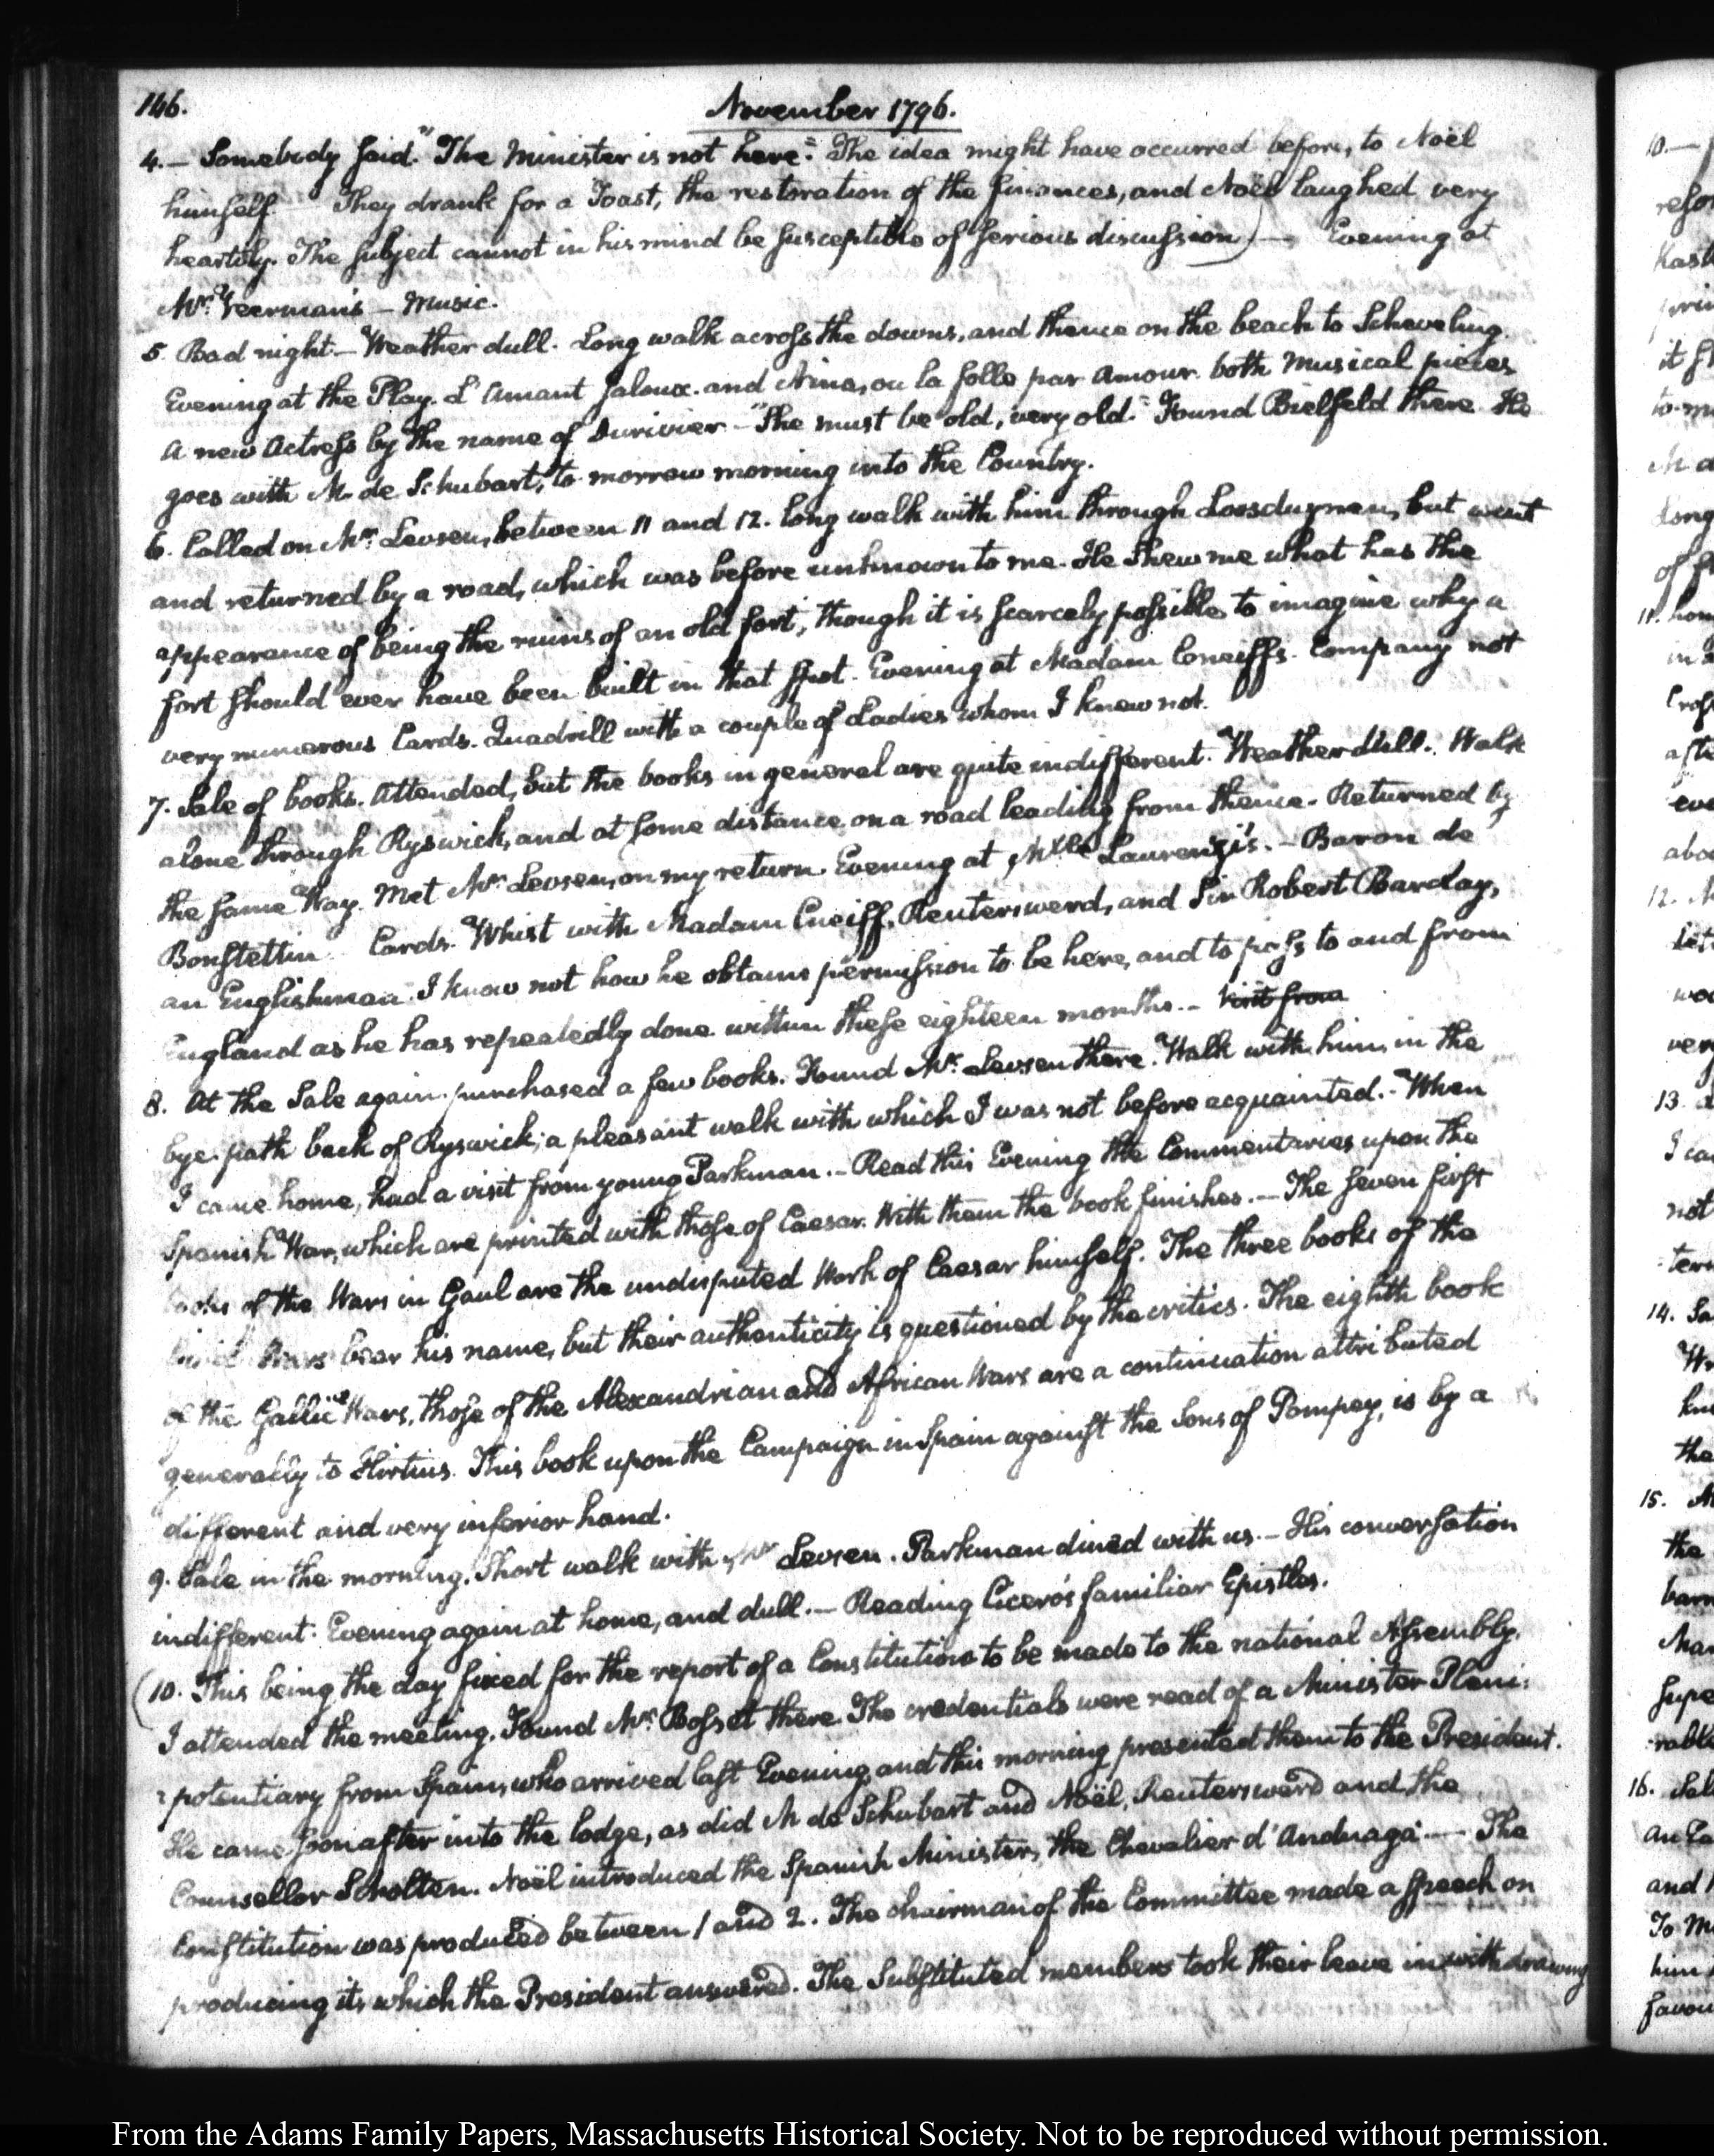 146.
November 1796.
4.— Somebody said. "The Minister is not here." The idea might have occurred before, to Noël
himself— They drank for a Toast, the restoration of the finances, and Noël laughed very
heartily. The subject cannot in his mind be susceptible of serious discussion)— Evening at
Mr: Veerman's — Music.
5. Bad night.— Weather dull. Long walk across the downs, and thence on the beach to Scheveling.
Evening at the Play. L'Amant jaloux. and Nina, ou la folle par Amour. both Musical pieces
A new Actress by the name of Durivier — "She must be old, very old." Found Bielfeld there. He
goes with M. de Schubart, to morrow morning into the Country.
6. Called on Mr: Levsen, between 11 and 12. long walk with him through Loosduynen, but went
and returned by a road, which was before unknown to me. He shew me what has the
appearance of being the ruins of an old fort, though it is scarcely possible to imagine why a
fort should ever have been built in that spot. Evening at Madam Cneiffs. Company not
very numerous Cards. Quadrill with a couple of Ladies whom I knew not.
7. Sale of books. Attended, but the books in general are quite indifferent. Weather dull. Walk
alone through Ryswick, and at some distance on a road leading from thence. Returned by
the same Way. Met Mr: Levsen, on my return. Evening at Mlle Laurenzi's.— Baron de
Bonstettin. Cards. Whist with Madam Cneiff, Reutersward, and Sir Robert Barclay,
an Englishman. I know not how he obtains permission to be here, and to pass to and from
England as he has repeatedly done within these eighteen months.— Visit from
8. At the Sale again. purchased a few books. Found Mr: Levsen there. Walk with him, in the
bye path back of Ryswick; a pleasant walk with which I was not before acquainted.— When
I came home, had a visit from young Parkman.— Read this Evening the Commentaries upon the
Spanish War, which are printed with those of Caesar. With them the book finishes.— The seven first
books of the Wars in Gaul are the undisputed Work of Caesar himself. The three books of the
civil Wars bear his name, but their authenticity is questioned by the critics. The eighth book
of the Gallic Wars, those of the Alexandrian and African Wars are a continuation attributed
generally to Hirtius. This book upon the Campaign in Spain against the Sons of Pompey, is by a
different and very inferior hand.
9. Sale in the morning. Short walk with Mr Levsen. Parkman dined with us.— His conversation
indifferent. Evening again at home, and dull.— Reading Cicero's familiar Epistles.
(10. This being the day fixed for the report of a Constitution to be made to the national Assembly.
I attended the meeting. Found Mr: Bosset there. The credentials were read of a Minister Pleni:
:potentiary from Spain, who arrived last Evening, and this morning presented them to the President.
He came soon after into the lodge, as did M de Schubart and Noël, Reutersward and the
Counsellor Scholten. Noël introduced the Spanish Minister, the Chevalier d'Anduaga.— The
Constitution was produced between 1 and 2. The chairman of the Committee made a speech on
producing it, which the President answered. The Substituted members took their leave in withdrawing
From the Adams Family Papers, Massachusetts Historical Society. Not to be reproduced without permission.